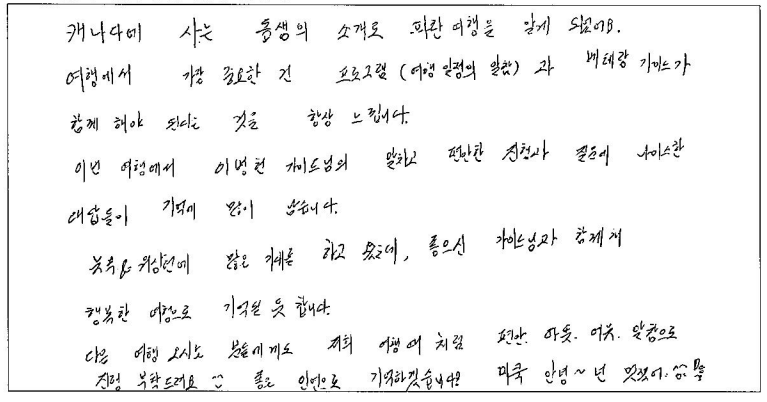 캐나다에 사는 동생의 소개로 파란 여행을 알게 되었어요.
여행에서 가장 중요한 건 프로그램 (여행 일정의 알참) 과 베테랑 가이드가
함께 해야 된다는 것을 항상 느낍니다.
이번 여행에서 이병헌 가이드님의 알차고 편안한 진행과 질문에 나이스한
대답들이 기억에 많이 남습니다.
많은 기대를 하고 왔는데, 좋으신 가이드님과 함께해
행복한 여행으로 기억될 듯 합니다.
다음 여행 오시는 분들에게도 저희 여행 때 처럼 편안. 알참으로
진행 부탁드려요 ^^ 좋은 인연으로 기억하겠습니다. 미국 안녕~ 넌 멋졌어. ^^